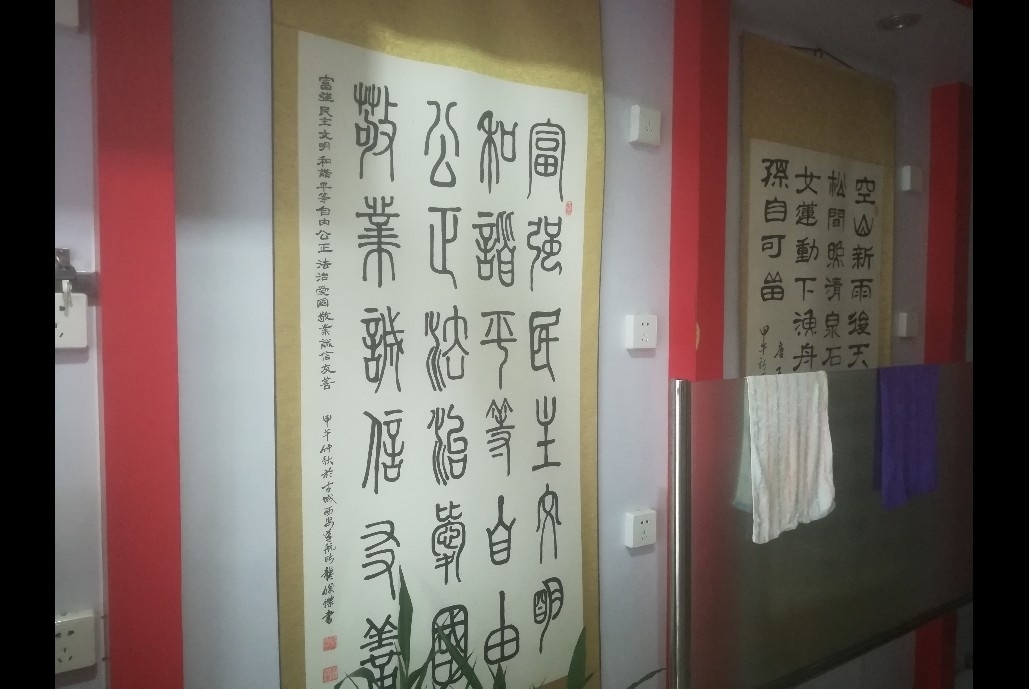 富强民主文明
和諧平等自由
公正法治愛國
敬業誠信友善
富強民主文明和諧平等自由公正法治愛國敬業誠信友善
甲午仲秋於古城西安
書
空山新雨後天
松間照清泉石
女蓮動下漁舟
孫自可留
唐王
甲午